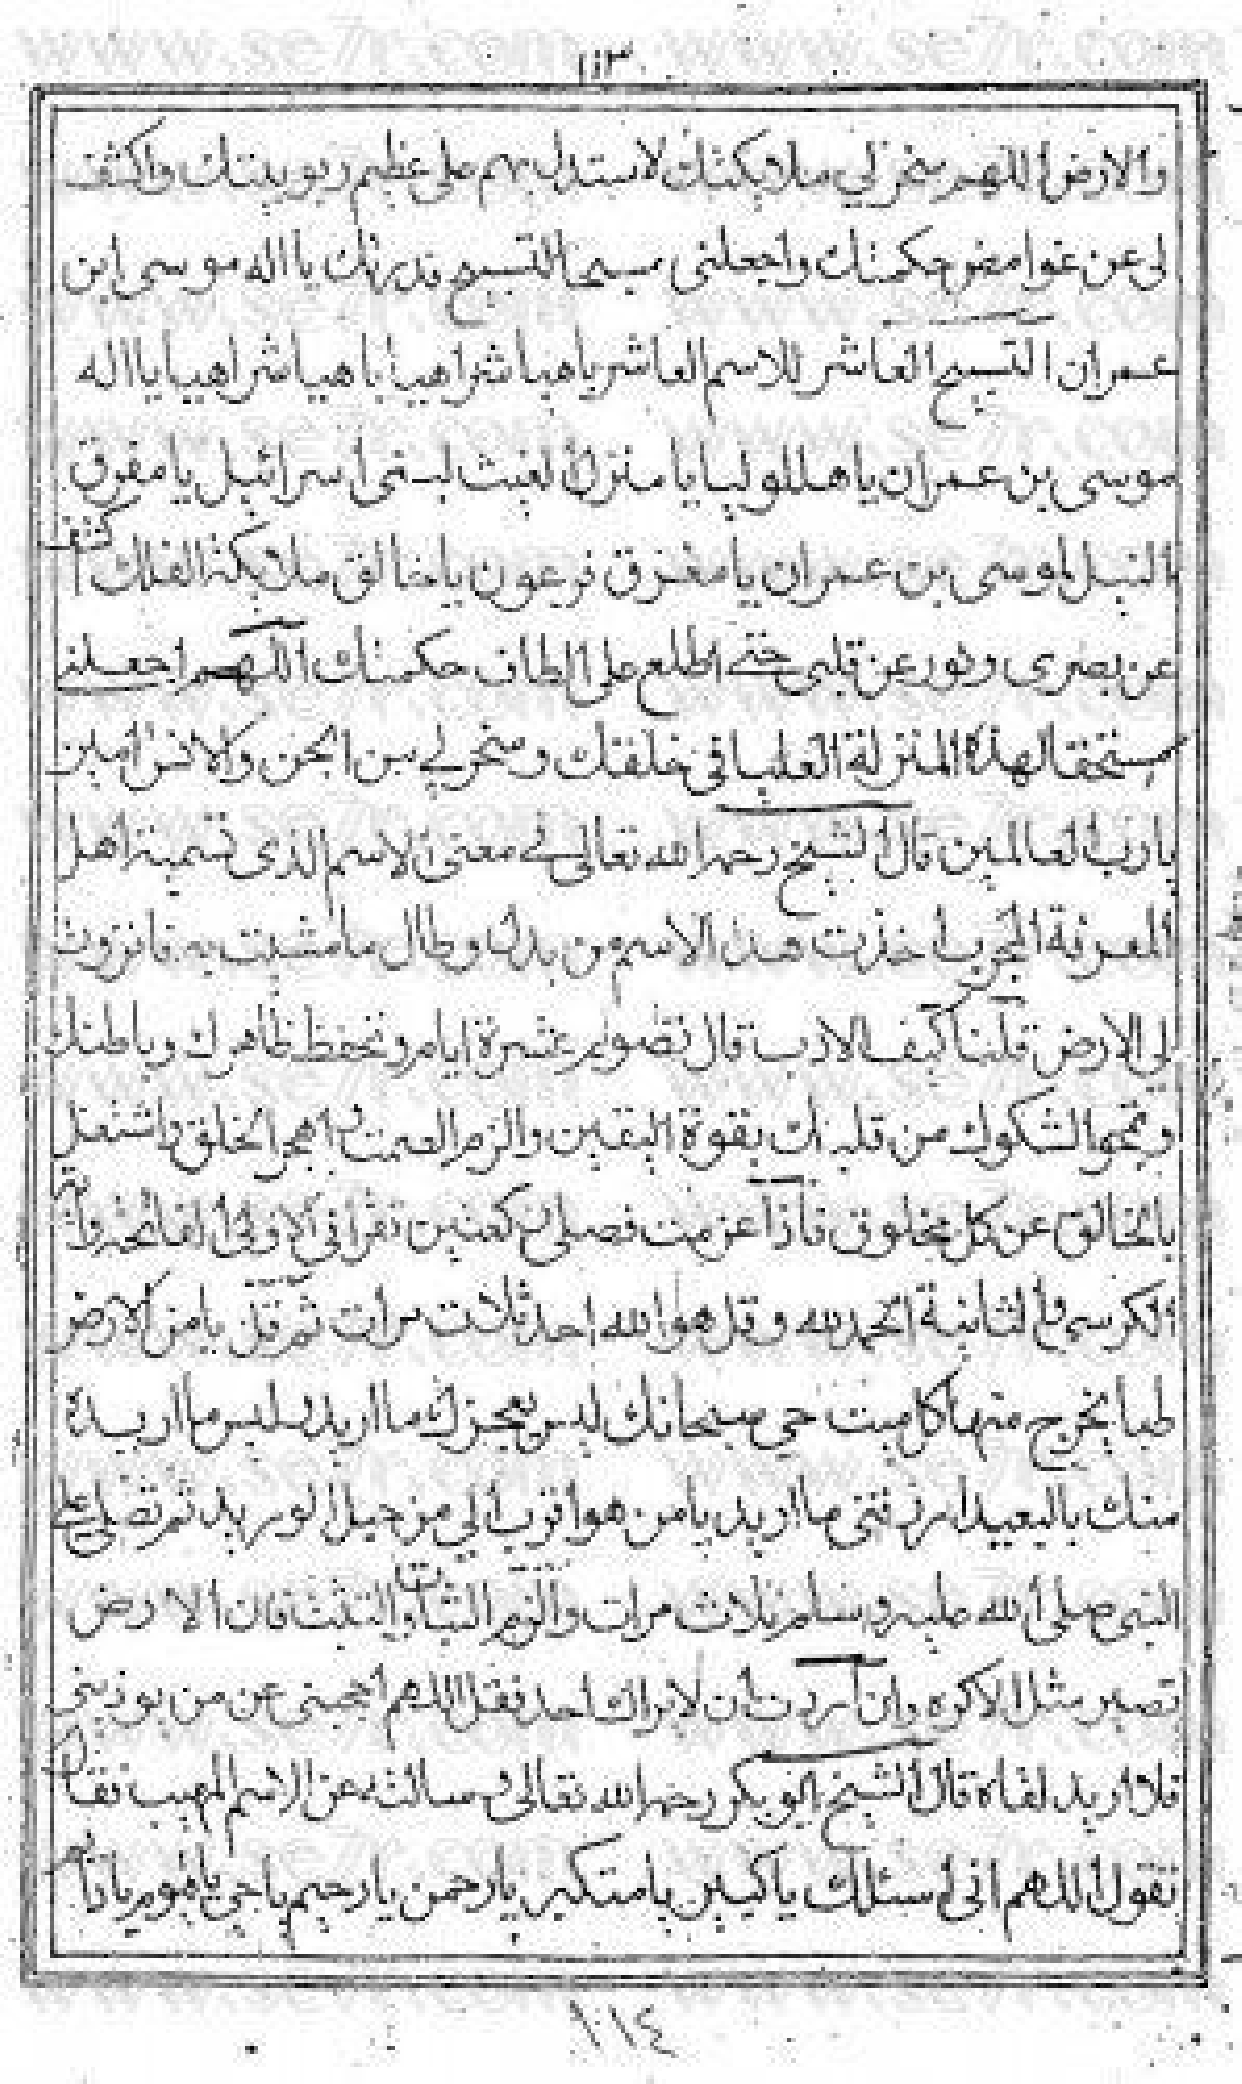 www.se7r.com www.se7r.com
١١٣
والارض اللهم سخر لي ملايكتك لاستدل بهم على عظيم ربوبيتك واكشف
لى عن غوامض حكمتك واجعلنى مسبحا التسبيح قدرتك يا اله موسى ابن
عمران التسبيح العاشر للاسم العاشر ياهيا شراهيا اياهيا شراهيا يا اله
موسى بن عمران ياهللوليا يا منزل الغيث لبنى اسرائيل يا مفرق
النيل لموسى بن عمران يا مغرق فرعون يا خالق ملايكة الفلك اكشف
عن بصرى ونور عن قلبى حتى اطلع على الطاف حكمتك اللهم اجعلنى
مستحقا لهذه المنزلة العليا في خلقك وسخر لي من الجن والانس امين
يارب العالمين قال الشيخ رحمه الله تعالى في معنى الاسم الذى تسميه اهل
المعرفة المجرب اخذت هذا الاسم من وطال ما مشيت به فانزوت
لى الارض قلنا كيف الادب قال تصوم عشرة ايام وتحفظ ظاهرك وباطنك
وتمحوا الشكوك من قلبك بقوة اليقين والزم الصمت واهجر الخلق واشتغل
بالخالق عن كل مخلوق فاذا عزمت فصلى ركعتين تقرا فى الاولى الفاتحة واية
الكرسى والثانية الحمد لله وقل هو الله احد ثلاث مرات ثم قل يا من الارض
طيا يخرج منها كل ميت حي سبحانك ليس يعجزك ما اريد ليس ما اريده
منك بالبعيد ارزقنى ما اريد يا من هو اقرب الي من حبل الوريد ثم تصلى على
النبى صلى الله عليه وسلم ثلاث مرات والزم الثبات والتثبت فان الارض
تصير مثل الاكره وان اردت ان لا يراك احد فقل اللهم احجبنى عن من يوذينى
فلا اريد لقاه قال الشيخ ابوبكر رحمه الله تعالى سالته عن الاسم المهيب فقال
تقول اللهم انى اسئلك يا كبير يا متكبر يا رحمن يا رحيم يا حي يا قيوم يا قايم
١١٤